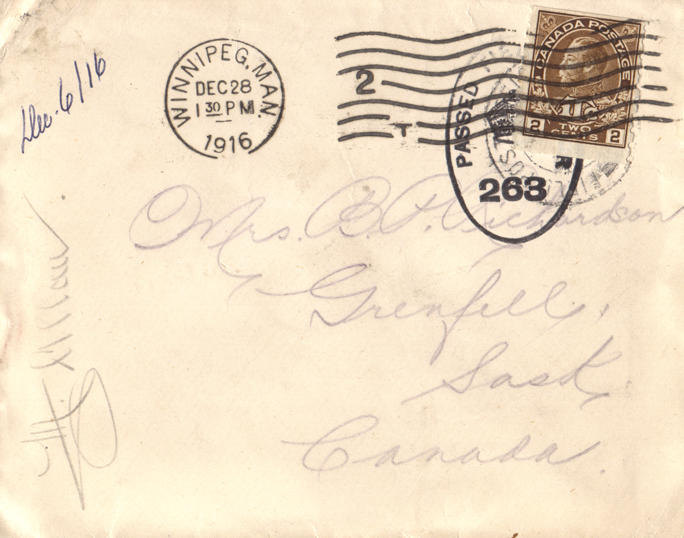 Dec. 6/16
WINNIPEG, MAN.
DEC 28
1 30 PM
1916
2
T
CANADA POSTAGE
2 TWO CENTS 2
PASSED
R
263
Mrs. B. P. Richardson
Grenfell,
Sask,
Canada.